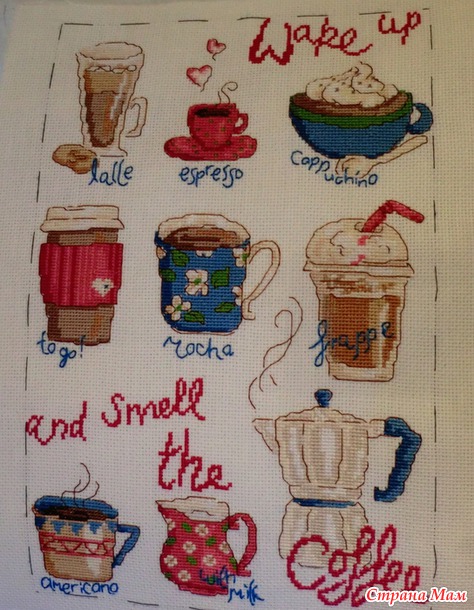 Wake up
latte
espresso
Cappuchino
to go!
Mocha
frappe
and smell
the
americano
with milk
Coffee
Страна Мам